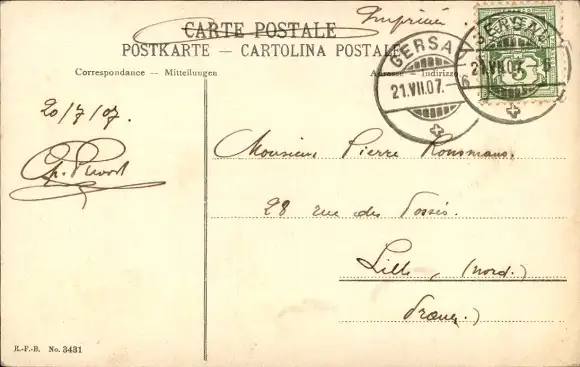 Imprimé
CARTE POSTALE
POSTKARTE – CARTOLINA POSTALE
Correspondance — Mitteilungen
Adresse — Indirizzo
GERSAU
21.VII.07.
6
GERSAU
21.VII.07. 6
5
20/7/07.
Monsieur Pierre
28 rue des Fossés.
Lille, (Nord.)
France.)
R.-F.-B. No. 3431